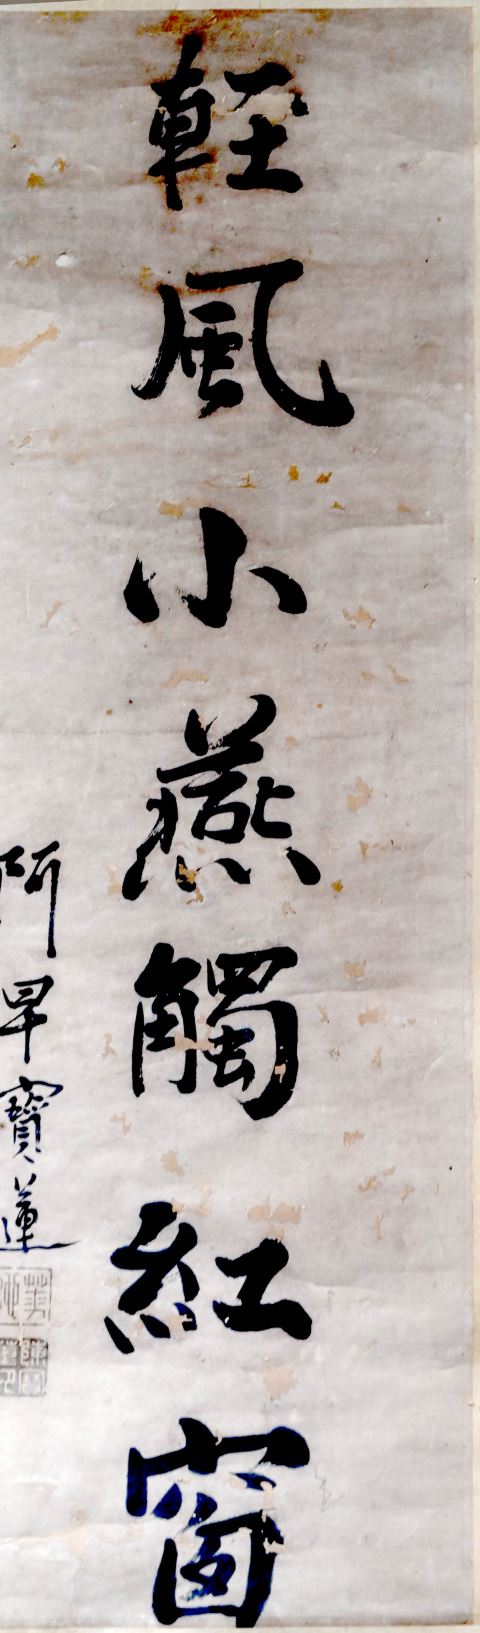 輕風小燕觸紅窗
阿早寶蓮